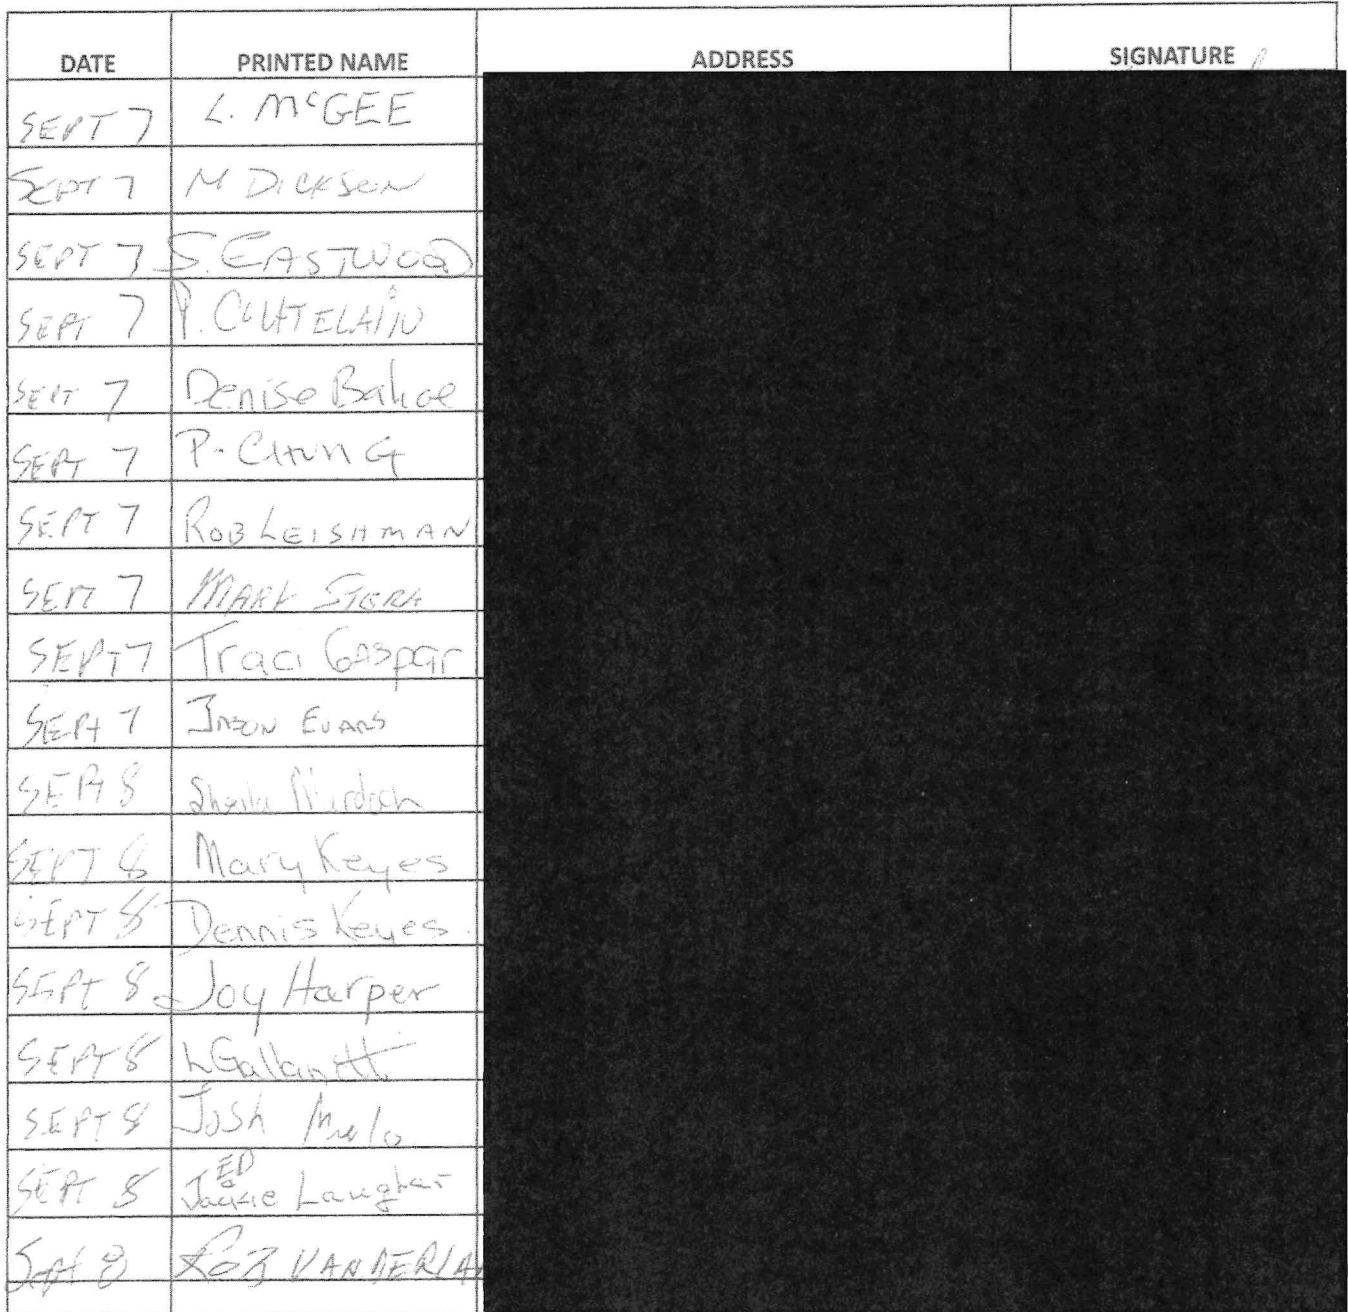 DATE PRINTED NAME ADDRESS SIGNATURE
SEPT 7 L. McGEE
SEPT 7 M DICKSON
SEPT 7 S. EASTWOOD
SEPT 7 P. CHATELAIN
SEPT 7 Denise
SEPT 7 P. CHUNG
SEPT 7 ROB LEISHMAN
SEPT 7 MARK
SEPT 7 Traci Gaspar
SEPT 7 JASON EVANS
SEPT 8 Sheila Murdoch
SEPT 8 Mary Keyes
SEPT 8 Dennis Keyes.
SEPT 8 Joy Harper
SEPT 8
SEPT 8 Josh Melo
ED
SEPT 8 Jackie
Sept 8 ROB VANDERLA